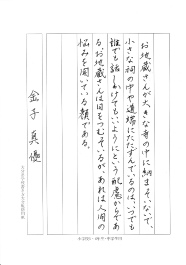 お地蔵さんが大きな寺の中に納まっていないで、
小さな祠の中や道端にたたずんでいるのは、いつでも
誰でも話しかけてもいいようにという配慮からであ
る。お地蔵さんは目をつむっているが、あれは人間の
悩みを聞いている顔である。
金子真優